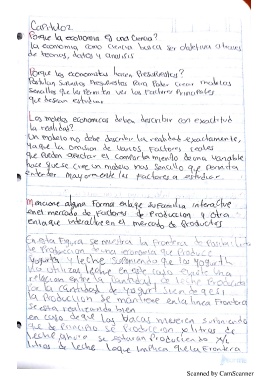 Capitulo 2
Porque la economia es una Ciencia?
la economia como ciencia busca ser objetiva a traves
de teorias, datos y analisis
Porque los economistas hacen Presupuestos?
sencillos que les Permita ver los Factores Principales
que desean estudiar
Los modelos economicos deben describir con exactitud
la realidad?
Un modelo no debe describir la realidad exactamente,
ya que la omision de varios factores reales
que pueden afectar el comportamiento de una variable
hace que se cree un modelo mas sencillo que permita
entender mayormente los factores a estudiar.
Mencione alguna Forma en la que su Familia interactue
en el mercado de Factores de Produccion y otra
en la que interactue en el mercado de Productos
En esta Figura se muestra la Frontera de Posibilidades
de Produccion de una economia que Produce
Yogurth y leche
utiliza leche en este caso existe una
relacion entre la cantidad de leche Producida
por la cantidad de yogurt
la Produccion se mantiene en la linea Frontera
se esta realizando bien
en caso de que las vacas mueren
que de Principio se Produccion x litros de
leche ahora se estaran Produciendo
litros de leche lo que implica que la Frontera
Scanned by CamScanner